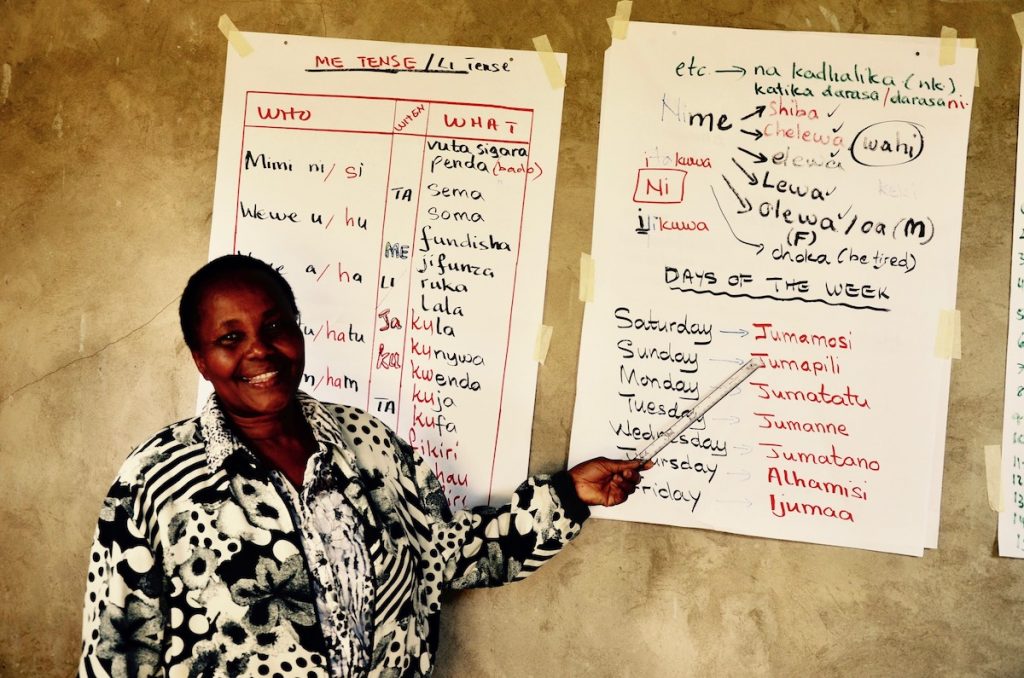 ME TENSE / LI Tense
WHO WHEN WHAT
vuta sigara
Mimi ni / si penda (bado)
TA sema
Wewe u / hu soma
ME fundisha
a / ha jifunza
LI ruka
lala
u / hatu Ja kula
ku kunywa
m / ham kwenda
TA kuja
kufa
fikiri
etc → na kadhalika (nk).
katika darasa / darasani
Nime shiba ✓
chelewa wahi
itakuwa elewa
Ni Lewa ✓
ilikuwa olewa ✓ / oa (M)
(F)
choka (be tired)
DAYS OF THE WEEK
Saturday → Jumamosi
Sunday → Jumapili
Monday Jumatatu
Tuesday Jumanne
Wednesday → Jumatano
Thursday Alhamisi
Friday Ijumaa